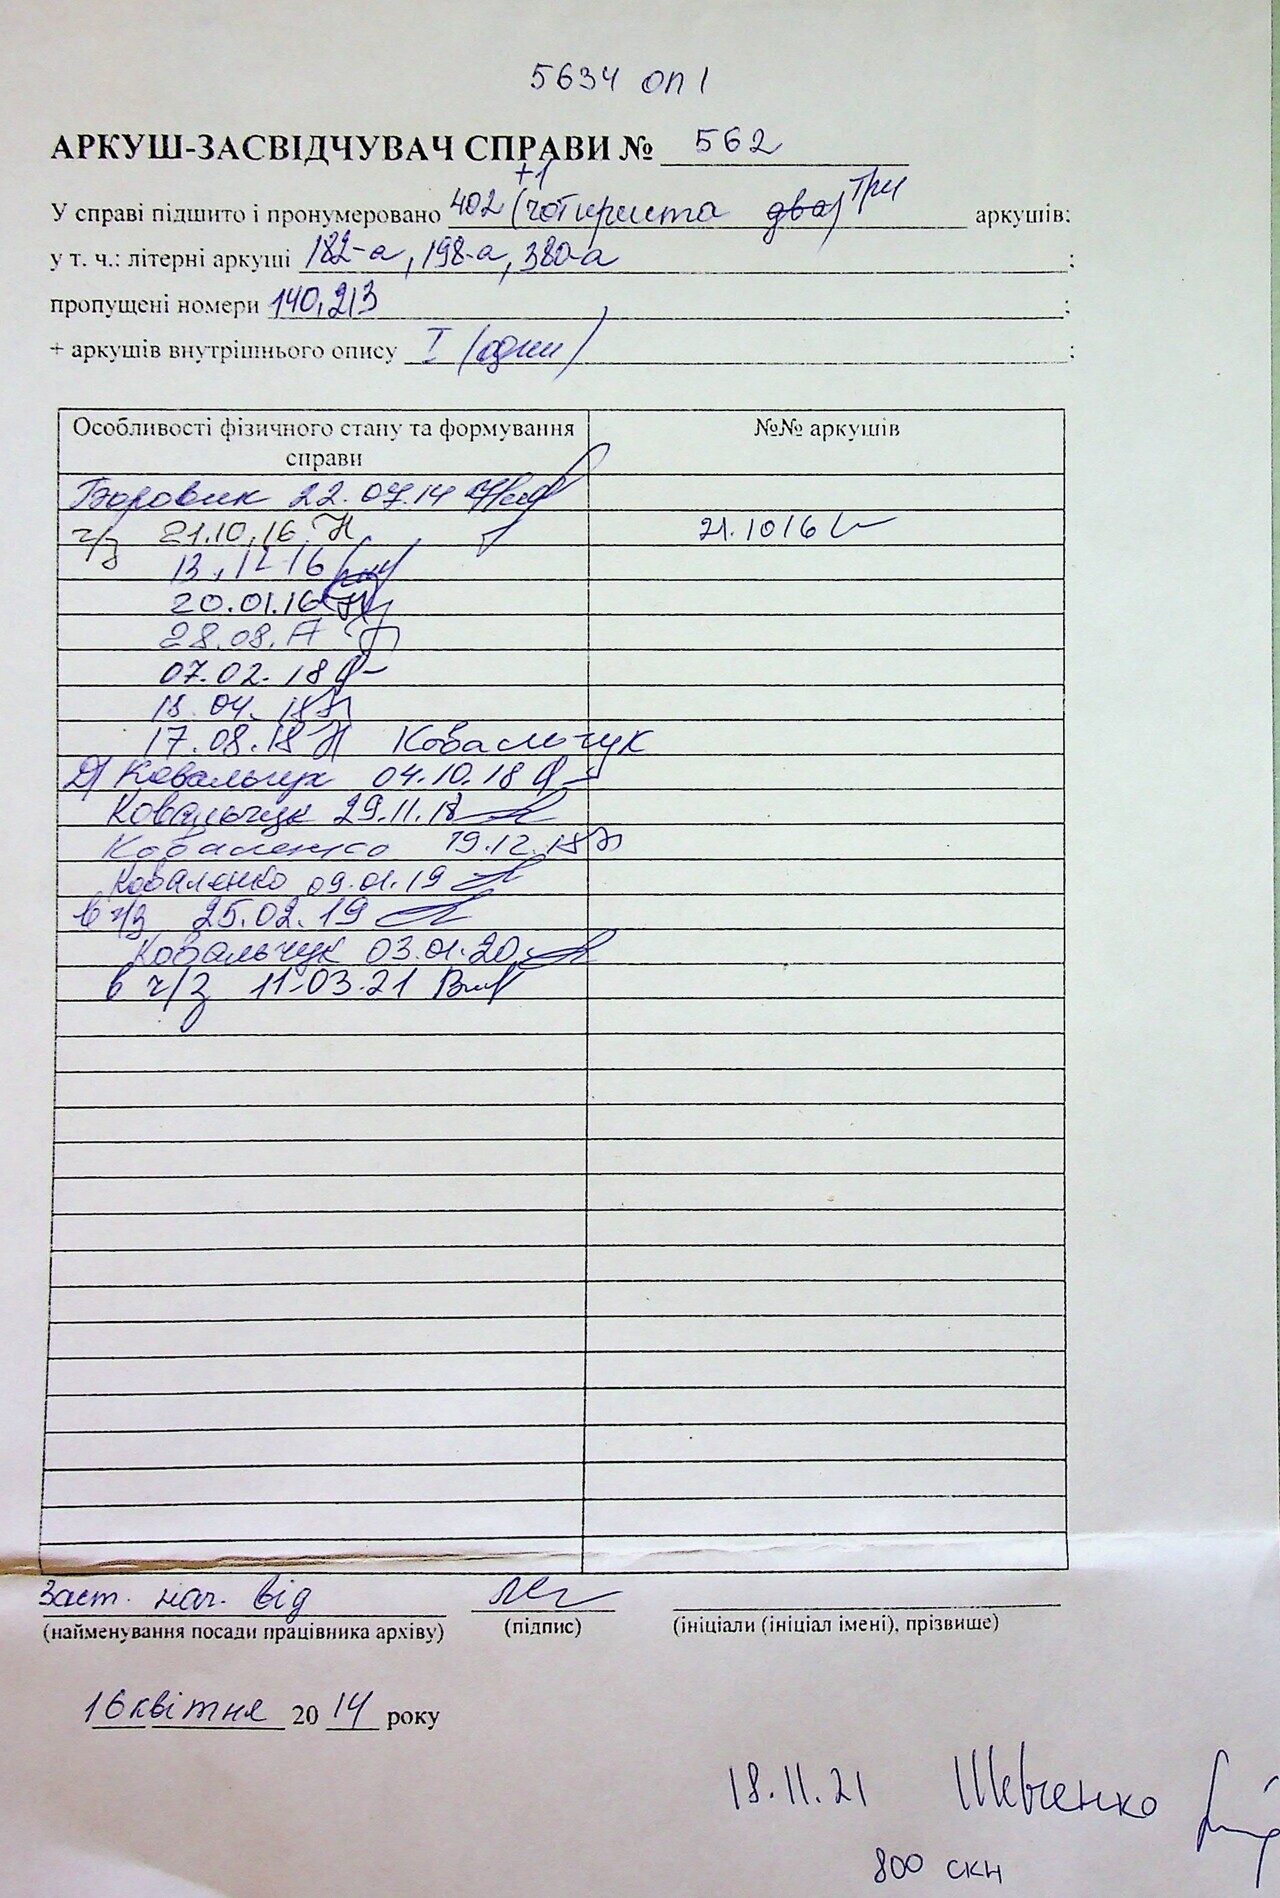 5634 оп 1
АРКУШ-ЗАСВІДЧУВАЧ СПРАВИ № 562
+1
У справі підшито і пронумеровано 402 (чотириста два) три аркушів;
у т. ч.: літерні аркуші 182-а, 198-а, 380-а ;
пропущені номери 140, 213 ;
+ аркушів внутрішнього опису I (один) ;
Особливості фізичного стану та формування справи №№ аркушів
Боровик 22.07.14
ч/з 21.10.16 21.10 16
13.12 16
20.01.16
28.08.17
07.02.18
18.04.18
17.08.18 Ковальчук
Ковальчук 04.10.18
Ковальчук 29.11.18
Коваленко 19.12.18
Коваленко 09.01.19
в ч/з 25.02.19
Ковальчук 03.01.20
в ч/з 11.03.21
Заст. нач. від
(найменування посади працівника архіву) (підпис) (ініціали (ініціал імені), прізвище)
16 квітня 2014 року
18.11.21 Шевченко
800 скн